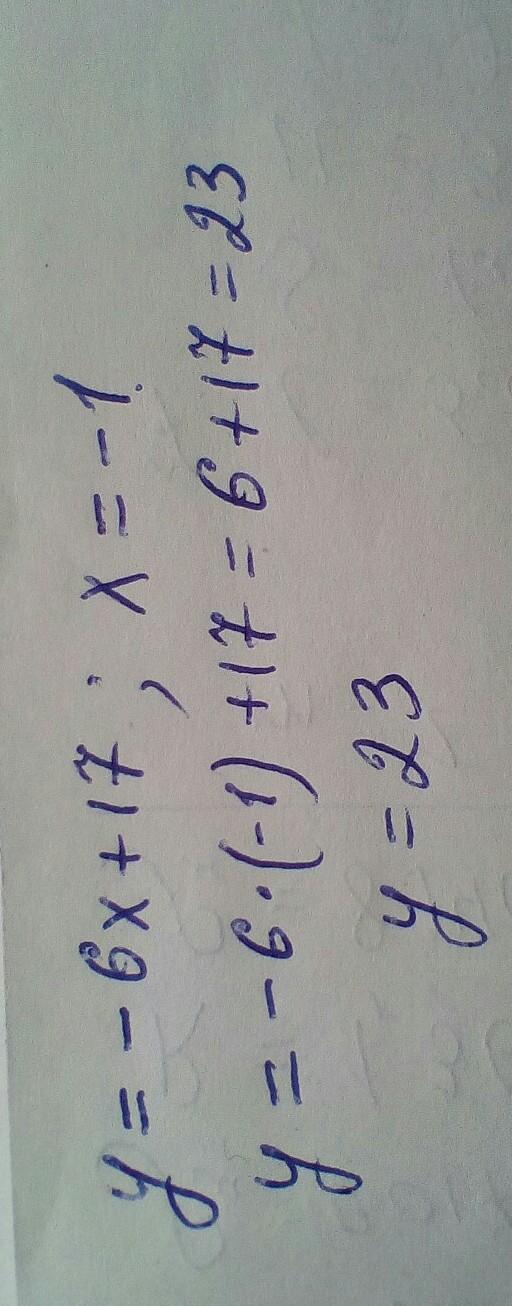 y = - 6x + 17 ; x = - 1.
y = - 6 · (-1) + 17 = 6 + 17 = 23
y = 23